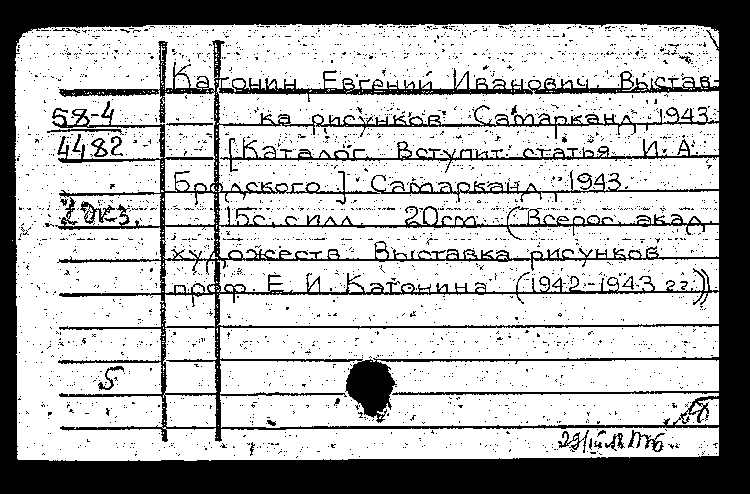 Катонин, Евгений Иванович. Выстав-
58-4 ка рисунков. Самарканд, 1943.
4482 [Каталог. Вступит. статья И. А.
Бродского]. Самарканд, 1943.
2 экз. 15с. с илл. 20см. (Всерос. акад.
художеств. Выставка рисунков
проф. Е. И. Катонина (1942-1943 гг.))
5